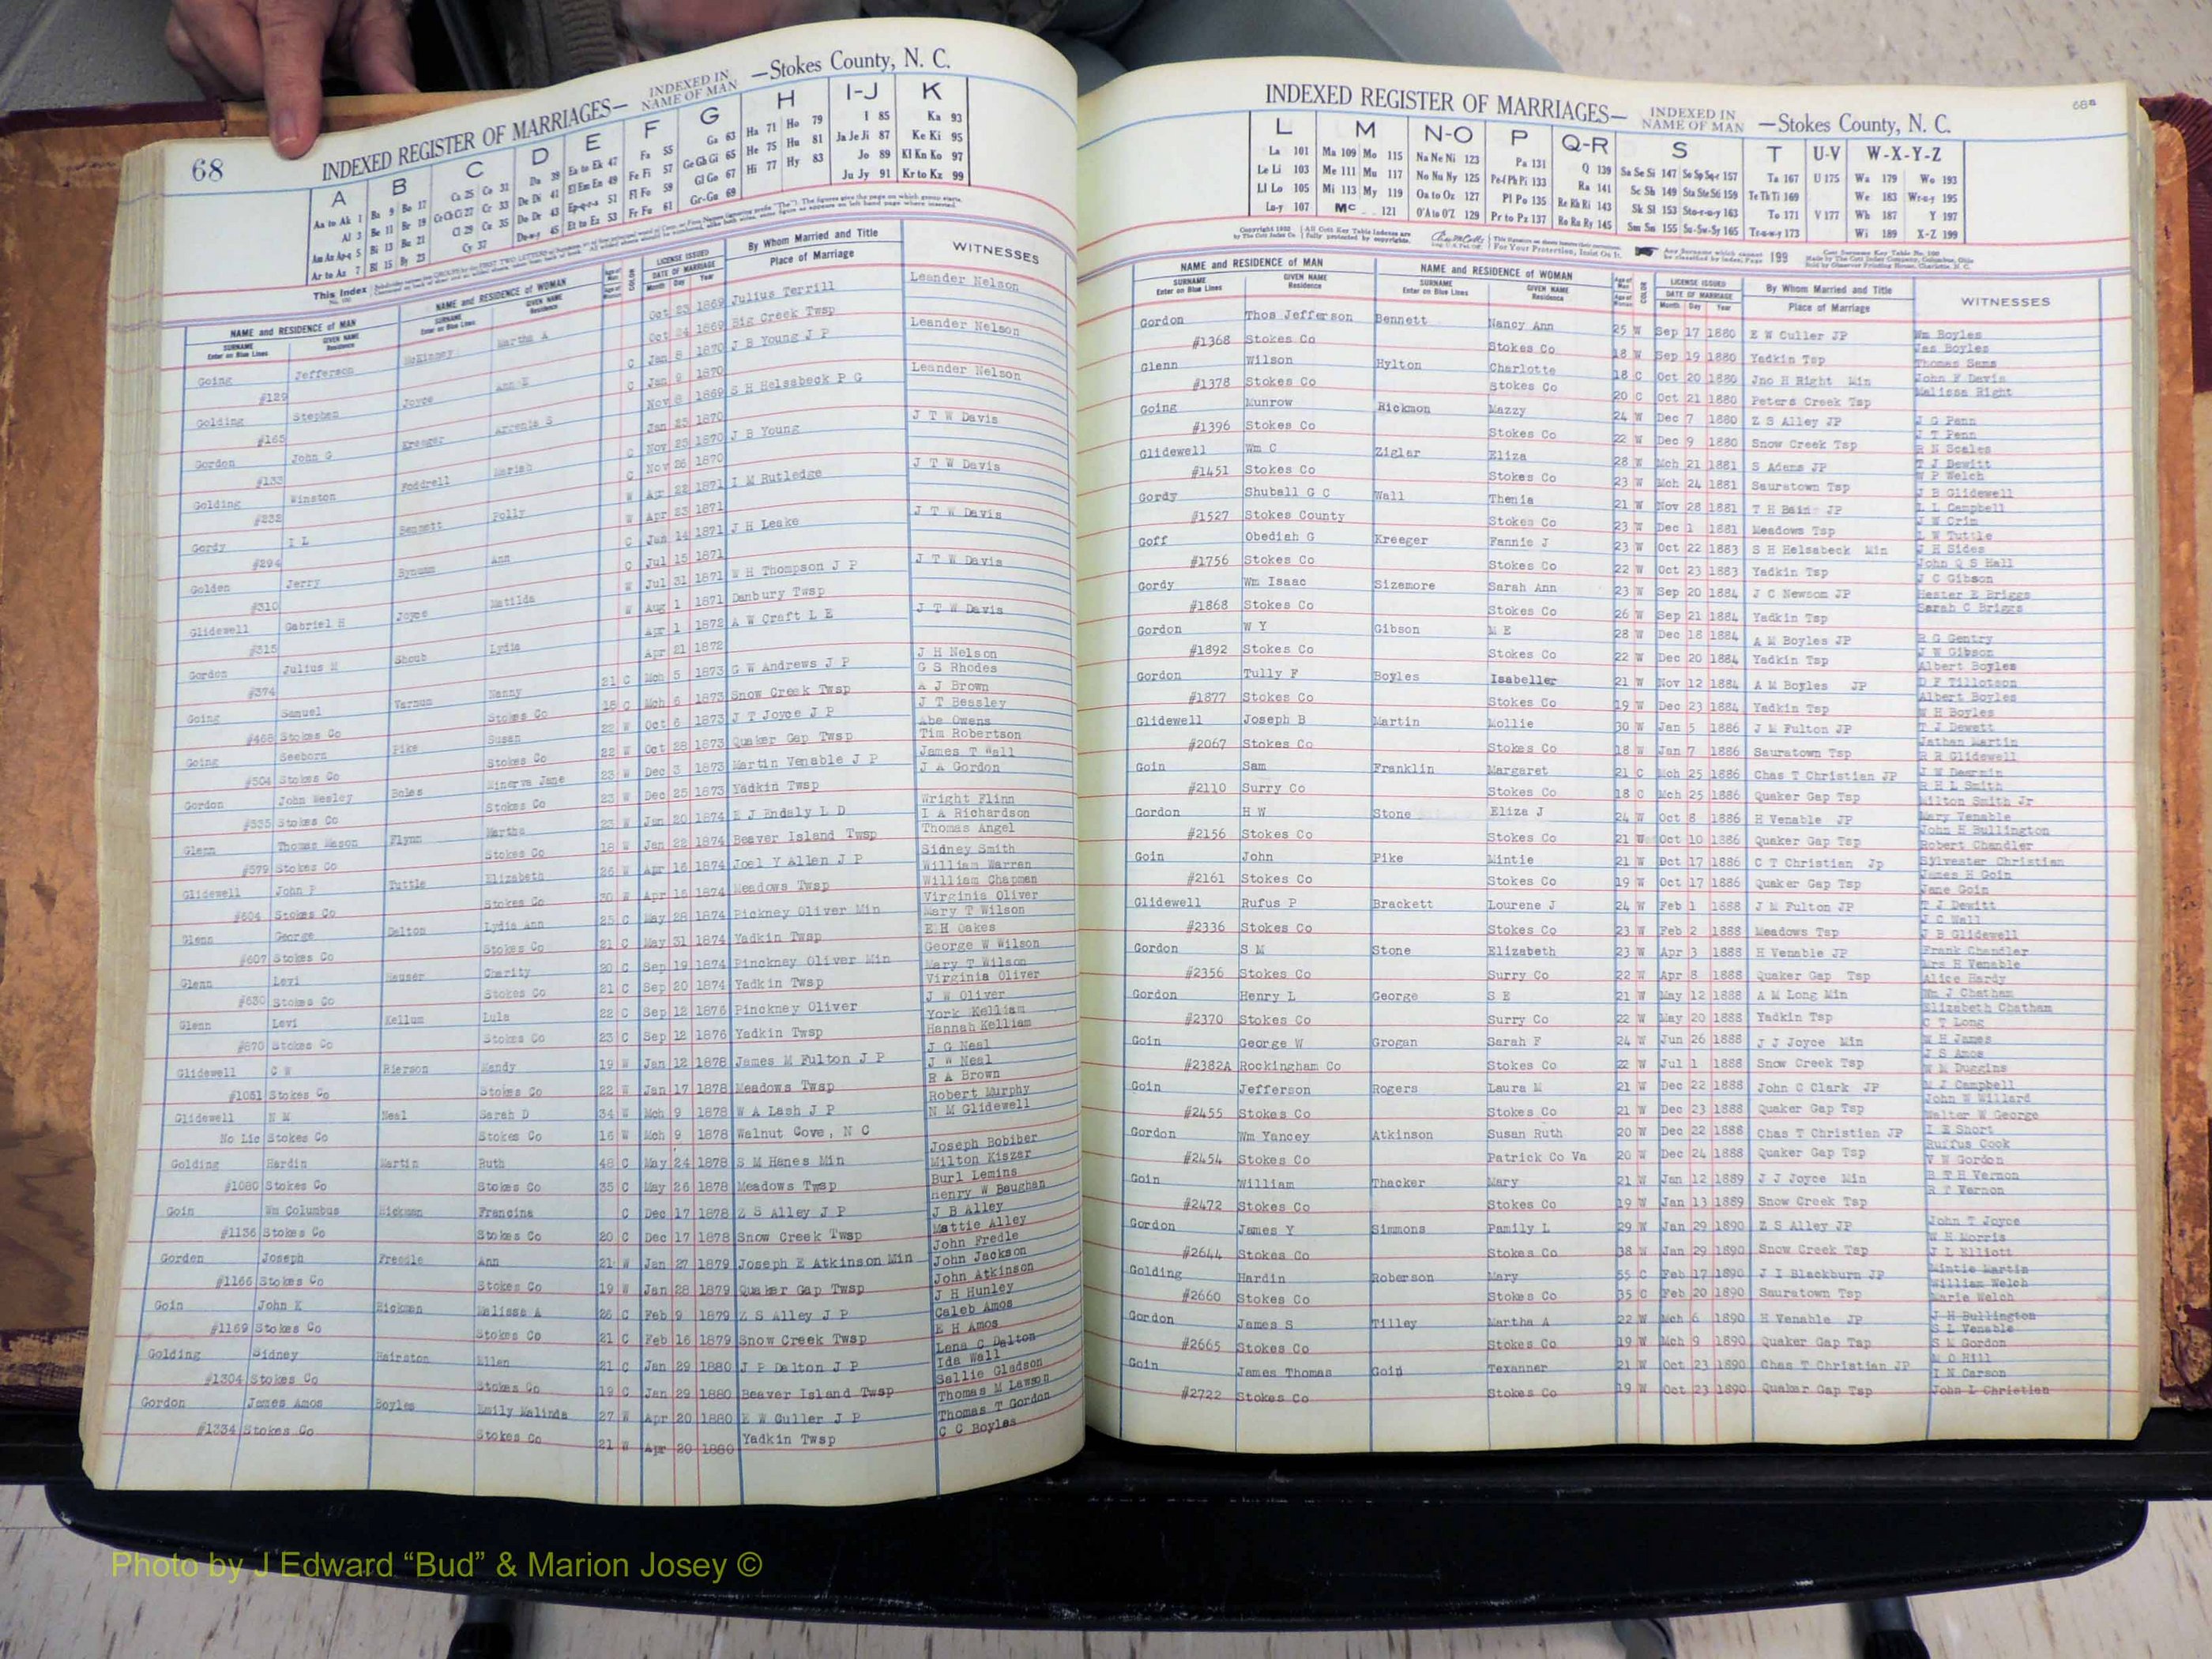 68
INDEXED REGISTER OF MARRIAGES— INDEXED IN NAME OF MAN —Stokes County, N. C.
A B C D E F G H I-J K
Aa to Ak 1 Ba 9 Bo 17 Ca 25 Co 31 Da 39 Ea to Ek 47 Fa 55 Ga 63 Ha 71 Ho 79 I 85 Ka 93
Al 3 Be 11 Br 19 Ce Ch Ci 27 Cr 33 De Di 41 El Em En 49 Fe Fi 57 Ge Gh Gi 65 He 75 Hu 81 Ja Je Ji 87 Ke Ki 95
Am An Ap-q 5 Bi 13 Bu 21 Cl 29 Cu 35 Do Dr 43 Ep-q-r-s 51 Fl Fo 59 Gl Go 67 Hi 77 Hy 83 Jo 89 Kl Kn Ko 97
Ar to Az 7 Bl 15 By 23 Cy 37 Du-w-y 45 Et to Ez 53 Fr Fu 61 Gr-Gu 69 Ju Jy 91 Kr to Kz 99
This Index
NAME and RESIDENCE OF MAN NAME and RESIDENCE OF WOMAN COLOR LICENSE ISSUED By Whom Married and Title WITNESSES
SURNAME Enter on Blue Lines GIVEN NAME Residence SURNAME Enter on Blue Lines GIVEN NAME Residence DATE OF MARRIAGE Month Day Year Place of Marriage
Going Jefferson McKinney Martha A Oct 23 1869 Julius Terrill Leander Nelson
#129 Oct 24 1869 Big Creek Twsp
Golding Stephen Joyce Ann E C Jan 8 1870 J B Young J P Leander Nelson
#165 C Jan 9 1870
Gordon John G Kreeger Arrenta S Nov 8 1869 S H Helsabeck P G Leander Nelson
#133 Jan 25 1870
Golding Winston Foddrell Mariah C Nov 25 1870 J B Young J T W Davis
#232 C Nov 26 1870
Gordy I L Bennett Polly W Apr 22 1871 I M Rutledge J T W Davis
#294 W Apr 23 1871
Golden Jerry Bynum Ann C Jun 14 1871 J H Leake J T W Davis
#310 C Jul 15 1871
Glidewell Gabriel H Joyce Matilda W Jul 31 1871 W H Thompson J P J T W Davis
#315 W Aug 1 1871 Danbury Twsp
Gordon Julius M Shoub Lydia Apr 1 1872 A W Craft L E J T W Davis
#374 Apr 21 1872
Going Samuel Varnum Nanny 21 C Mch 5 1873 G W Andrews J P J H Nelson
G S Rhodes
#468 Stokes Co Stokes Co 18 C Mch 6 1873 Snow Creek Twsp A J Brown
Going Seeborn Pike Susan 22 W Oct 6 1873 J T Joyce J P J T Beasley
Abe Owens
#504 Stokes Co Stokes Co 22 W Oct 28 1873 Quaker Gap Twsp Tim Robertson
Gordon John Wesley Boles Minerva Jane 23 W Dec 3 1873 Martin Venable J P James T Wall
J A Gordon
#535 Stokes Co Stokes Co 23 W Dec 25 1873 Yadkin Twsp
Glenn Thomas Mason Flynn Martha 23 W Jan 20 1874 E J Endaly L D Wright Flinn
I A Richardson
#579 Stokes Co Stokes Co 18 W Jan 22 1874 Beaver Island Twsp Thomas Angel
Glidewell John P Tuttle Elizabeth 26 W Apr 16 1874 Joel Y Allen J P Sidney Smith
William Warren
#604 Stokes Co Stokes Co 30 W Apr 16 1874 Meadows Twsp William Chapman
Glenn George Dalton Lydia Ann 25 C May 28 1874 Pickney Oliver Min Virginia Oliver
Mary T Wilson
#607 Stokes Co Stokes Co 21 C May 31 1874 Yadkin Twsp E H Oakes
Glenn Levi Hauser Charity 20 C Sep 19 1874 Pinckney Oliver Min George W Wilson
Mary T Wilson
#630 Stokes Co Stokes Co 21 C Sep 20 1874 Yadkin Twsp Virginia Oliver
Glenn Levi Kellum Lula 22 C Sep 12 1876 Pinckney Oliver J W Oliver
York Kelliam
#870 Stokes Co Stokes Co 23 C Sep 12 1876 Yadkin Twsp Hannah Kelliam
Glidewell C W Rierson Mandy 19 W Jan 12 1878 James M Fulton J P J G Neal
J W Neal
#1051 Stokes Co Stokes Co 22 W Jan 17 1878 Meadows Twsp R A Brown
Glidewell N M Neal Sarah D 34 W Mch 9 1878 W A Lash J P Robert Murphy
N M Glidewell
No Lic Stokes Co Stokes Co 16 W Mch 9 1878 Walnut Cove, N C
Golding Hardin Martin Ruth 48 C May 24 1878 S M Hanes Min Joseph Bobiber
Milton Kiszer
#1080 Stokes Co Stokes Co 35 C May 26 1878 Meadows Twsp Burl Lemins
Goin Wm Columbus Hickman Francine C Dec 17 1878 Z S Alley J P Henry W Baughan
J B Alley
#1136 Stokes Co Stokes Co 20 C Dec 17 1878 Snow Creek Twsp Mattie Alley
Gorden Joseph Freedle Ann 21 W Jan 27 1879 Joseph E Atkinson Min John Fredle
John Jackson
#1166 Stokes Co Stokes Co 19 W Jan 28 1879 Quaker Gap Twsp John Atkinson
Goin John K Hickman Melissa A 26 C Feb 9 1879 Z S Alley J P J H Hunley
Caleb Amos
#1169 Stokes Co Stokes Co 21 C Feb 16 1879 Snow Creek Twsp E H Amos
Golding Sidney Hairston Ellen 21 C Jan 29 1880 J P Dalton J P Lena C Dalton
Ida Wall
#1304 Stokes Co Stokes Co 19 C Jan 29 1880 Beaver Island Twsp Sallie Gladson
Gordon James Amos Boyles Emily Malinda 27 W Apr 20 1880 E W Culler J P Thomas M Lawson
Thomas T Gordon
#1334 Stokes Co Stokes Co 21 W Apr 20 1880 Yadkin Twsp C C Boyles
68B
INDEXED REGISTER OF MARRIAGES— INDEXED IN NAME OF MAN —Stokes County, N. C.
L M N-O P Q-R S T U-V W-X-Y-Z
La 101 Ma 109 Mo 115 Na Ne Ni 123 Pa 131 Q 139 Sa Se Si 147 So Sp Sq-r 157 Ta 167 U 175 Wa 179 Wo 193
Le Li 103 Me 111 Mu 117 No Nu Ny 125 Pe-f Ph Pi 133 Ra 141 Sc Sh 149 Sta Ste Sti 159 Te Th Ti 169 We 183 Wr-u-y 195
Ll Lo 105 Mi 113 My 119 Oa to Oz 127 Pl Po 135 Re Rh Ri 143 Sk Sl 153 Sto-r-u-y 163 To 171 V 177 Wh 187 Y 197
Lu-y 107 Mc 121 O'A to O'Z 129 Pr to Pz 137 Ro Ru Ry 145 Sm Sn 155 Su-Sw-Sy 165 Tr-u-w-y 173 Wi 189 X-Z 199
NAME and RESIDENCE OF MAN NAME and RESIDENCE OF WOMAN COLOR LICENSE ISSUED By Whom Married and Title WITNESSES
SURNAME Enter on Blue Lines GIVEN NAME Residence SURNAME Enter on Blue Lines GIVEN NAME Residence DATE OF MARRIAGE Month Day Year Place of Marriage
Gordon Thos Jefferson Bennett Nancy Ann 25 W Sep 17 1880 E W Culler JP Wm Boyles
Jas Boyles
#1368 Stokes Co Stokes Co 18 W Sep 19 1880 Yadkin Tsp Thomas Sams
Glenn Wilson Hylton Charlotte 18 C Oct 20 1880 Jno H Right Min John F Davis
Malissa Right
#1378 Stokes Co Stokes Co 20 C Oct 21 1880 Peters Creek Tsp
Going Munrow Hickmon Mazzy 24 W Dec 7 1880 Z S Alley JP J G Penn
J T Penn
#1396 Stokes Co Stokes Co 22 W Dec 9 1880 Snow Creek Tsp R N Scales
Glidewell Wm C Zigler Eliza 28 W Mch 21 1881 S Adams JP T J Dewitt
W P Welch
#1451 Stokes Co Stokes Co 23 W Mch 24 1881 Sauratown Tsp J B Glidewell
Gordy Shuball G C Wall Thenia 21 W Nov 28 1881 T H Bain JP L L Campbell
J W Crim
#1527 Stokes County Stokes Co 23 W Dec 1 1881 Meadows Tsp L W Tuttle
Goff Obediah G Kreeger Fannie J 23 W Oct 22 1883 S H Helsabeck Min J H Sides
John Q S Hall
#1756 Stokes Co Stokes Co 22 W Oct 23 1883 Yadkin Tsp J C Gibson
Gordy Wm Isaac Sizemore Sarah Ann 23 W Sep 20 1884 J C Newsom JP Hester E Briggs
Sarah C Briggs
#1868 Stokes Co Stokes Co 26 W Sep 21 1884 Yadkin Tsp
Gordon W Y Gibson M E 28 W Dec 18 1884 A M Boyles JP R G Gentry
J W Gibson
#1892 Stokes Co Stokes Co 22 W Dec 20 1884 Yadkin Tsp Albert Boyles
Gordon Tully F Boyles Isabeller 21 W Nov 12 1884 A M Boyles JP D F Tillotson
Albert Boyles
#1877 Stokes Co Stokes Co 19 W Dec 23 1884 Yadkin Tsp W H Boyles
Glidewell Joseph B Martin Mollie 30 W Jan 5 1886 J M Fulton JP T J Dewett
Jathan Martin
#2067 Stokes Co Stokes Co 18 W Jan 7 1886 Sauratown Tsp R R Glidewell
Goin Sam Franklin Margaret 21 C Mch 25 1886 Chas T Christian JP
R H L Smith
#2110 Surry Co Stokes Co 18 C Mch 25 1886 Quaker Gap Tsp Milton Smith Jr
Gordon H W Stone Eliza J 24 W Oct 8 1886 H Venable JP Mary Venable
John H Bullington
#2156 Stokes Co Stokes Co 21 W Oct 10 1886 Quaker Gap Tsp Robert Chandler
Goin John Pike Mintie 21 W Oct 17 1886 C T Christian Jp Sylvester Christian
James H Goin
#2161 Stokes Co Stokes Co 19 W Oct 17 1886 Quaker Gap Tsp Jane Goin
Glidewell Rufus P Brackett Lourene J 24 W Feb 1 1888 J M Fulton JP T J Dewitt
J C Wall
#2336 Stokes Co Stokes Co 23 W Feb 2 1888 Meadows Tsp J B Glidewell
Gordon S M Stone Elizabeth 23 W Apr 3 1888 H Venable JP Frank Chandler
Mrs H Venable
#2356 Stokes Co Surry Co 22 W Apr 8 1888 Quaker Gap Tsp Alice Hardy
Gordon Henry L George S E 21 W May 12 1888 A M Long Min Wm J Chatham
Elizabeth Chatham
#2370 Stokes Co Surry Co 22 W May 20 1888 Yadkin Tsp C T Long
Goin George W Grogan Sarah F 24 W Jun 26 1888 J J Joyce Min W H James
J S Amos
#2382A Rockingham Co Stokes Co 22 W Jul 1 1888 Snow Creek Tsp W M Duggins
Goin Jefferson Rogers Laura M 21 W Dec 22 1888 John C Clark JP M J Campbell
John W Willard
#2455 Stokes Co Stokes Co 21 W Dec 23 1888 Quaker Gap Tsp Walter W George
Gordon Wm Yancey Atkinson Susan Ruth 20 W Dec 22 1888 Chas T Christian JP I E Short
Ruffus Cook
#2454 Stokes Co Patrick Co Va 20 W Dec 24 1888 Quaker Gap Tsp V W Gordon
Goin William Thacker Mary 21 W Jan 12 1889 J J Joyce Min B T H Vernon
R T Vernon
#2472 Stokes Co Stokes Co 19 W Jan 13 1889 Snow Creek Tsp
Gordon James Y Simmons Pamily L 29 W Jan 29 1890 Z S Alley JP John T Joyce
W H Morris
#2644 Stokes Co Stokes Co 38 W Jan 29 1890 Snow Creek Tsp J L Elliott
Golding Hardin Roberson Mary 55 C Feb 17 1890 J I Blackburn JP Mintie Martin
William Welch
#2660 Stokes Co Stokes Co 35 C Feb 20 1890 Sauratown Tsp Marie Welch
Gordon James S Tilley Martha A 22 W Mch 6 1890 H Venable JP J H Bullington
S L Venable
#2665 Stokes Co Stokes Co 19 W Mch 9 1890 Quaker Gap Tsp S M Gordon
Goin James Thomas Goin Texanner 21 W Oct 23 1890 Chas T Christian JP M O Hill
I N Carson
#2722 Stokes Co Stokes Co 19 W Oct 23 1890 Quaker Gap Tsp John L Christian
Photo by J Edward “Bud” & Marion Josey ©